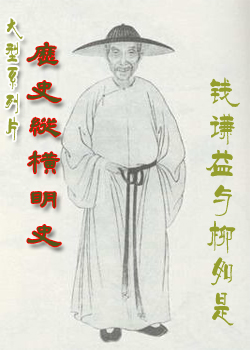 大型系列片
歷史縱橫明史
钱谦益与柳如是